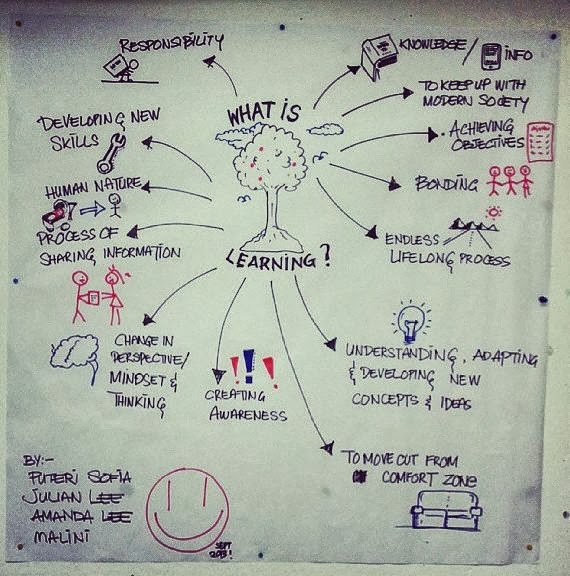 WHAT IS
LEARNING?
RESPONSIBILITY
KNOWLEDGE /
INFO
TO KEEP UP WITH
MODERN SOCIETY
ACHIEVING
OBJECTIVES
BONDING
ENDLESS
LIFELONG PROCESS
UNDERSTANDING, ADAPTING
& DEVELOPING NEW
CONCEPTS & IDEAS
TO MOVE OUT FROM
COMFORT ZONE
CREATING
AWARENESS
!!!
CHANGE IN
PERSPECTIVE/
MINDSET &
THINKING
PROCESS OF
SHARING INFORMATION
HUMAN NATURE
DEVELOPING NEW
SKILLS
BY:-
PUTERI SOFIA
JULIAN LEE
AMANDA LEE
MALINI
SEPT
2013!